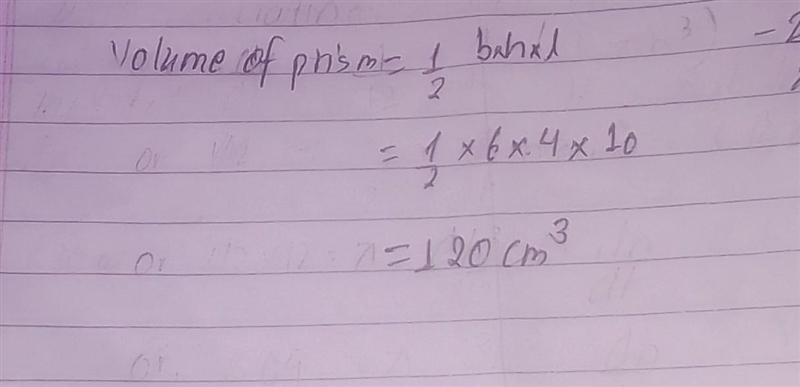 Volume of prism = 1/2 b×h×l
= 1/2 × 6 × 4 × 10
= 120 cm³